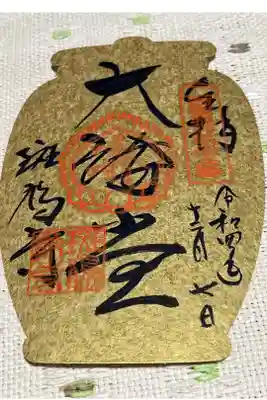 奉拝
令和四年
十二月七日
大講堂
斑鳩寺